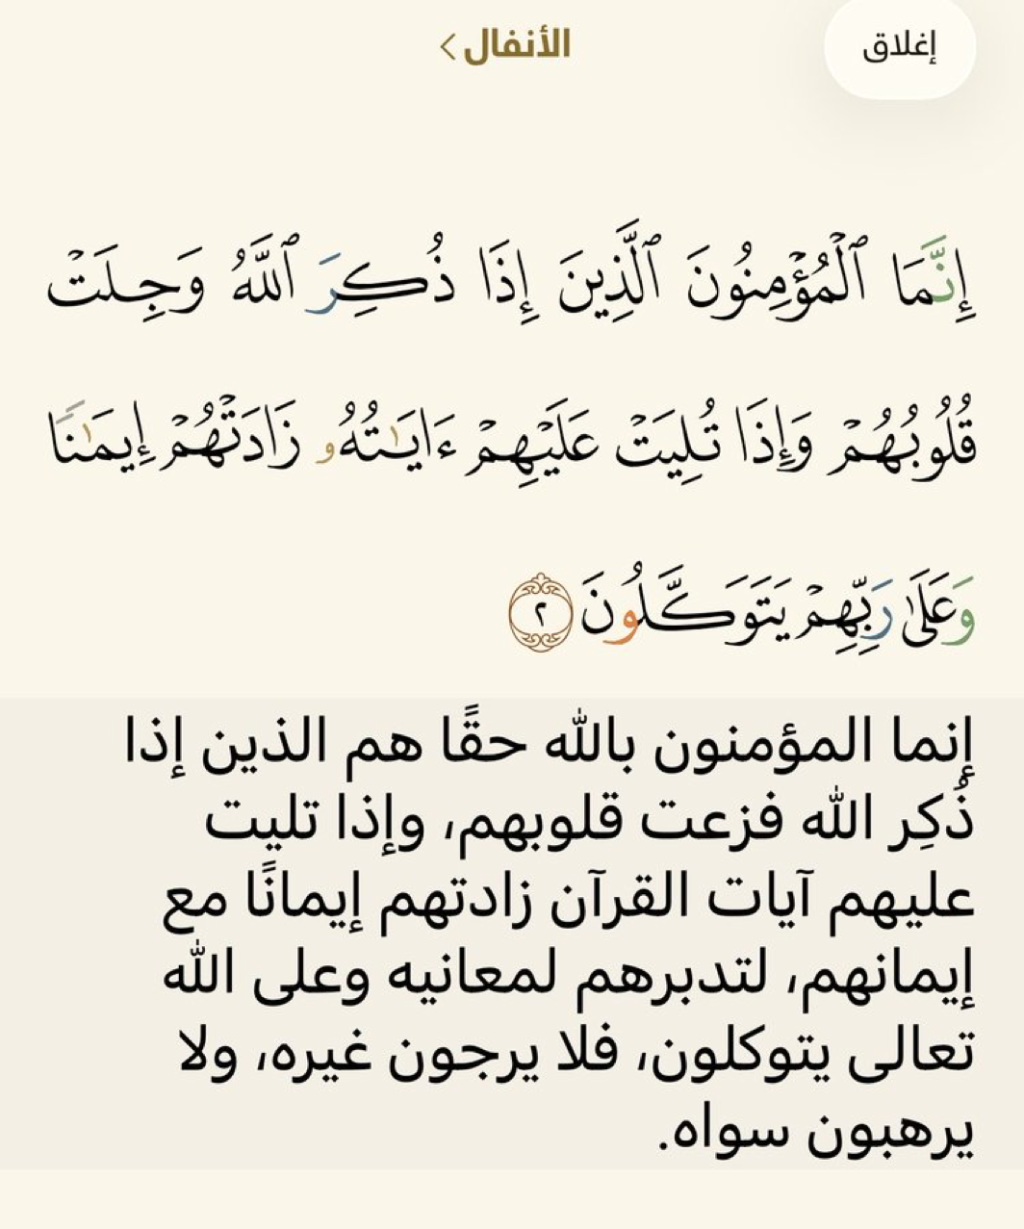 إغلاق
الأنفال >
إِنَّمَا ٱلْمُؤْمِنُونَ ٱلَّذِينَ إِذَا ذُكِرَ ٱللَّهُ وَجِلَتْ
قُلُوبُهُمْ وَإِذَا تُلِيَتْ عَلَيْهِمْ ءَايَـٰتُهُۥ زَادَتْهُمْ إِيمَـٰنًا
وَعَلَىٰ رَبِّهِمْ يَتَوَكَّلُونَ ٢
إنما المؤمنون بالله حقًا هم الذين إذا
ذُكِر الله فزعت قلوبهم، وإذا تليت
عليهم آيات القرآن زادتهم إيمانًا مع
إيمانهم، لتدبرهم لمعانيه وعلى الله
تعالى يتوكلون، فلا يرجون غيره، ولا
يرهبون سواه.